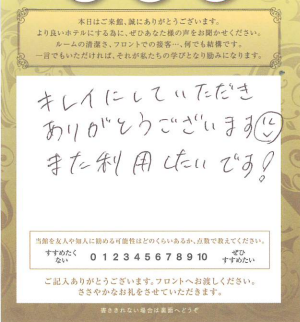 本日はご来館、誠にありがとうございます。
より良いホテルにする為に、ぜひあなた様の声をお聞かせください。
ルームの清潔さ、フロントでの接客…、何でも結構です。
一言でもいただければ、それが私たちの学びとなり励みになります。
キレイにしていただき
ありがとうございます
また利用したいです!
当館を友人や知人に勧める可能性はどのくらいあるか、点数で教えてください。
すすめたくない 0 1 2 3 4 5 6 7 8 9 10 ぜひすすめたい
ご記入ありがとうございます。フロントへお渡しください。
ささやかなお礼をさせていただきます。
書ききれない場合は裏面へどうぞ